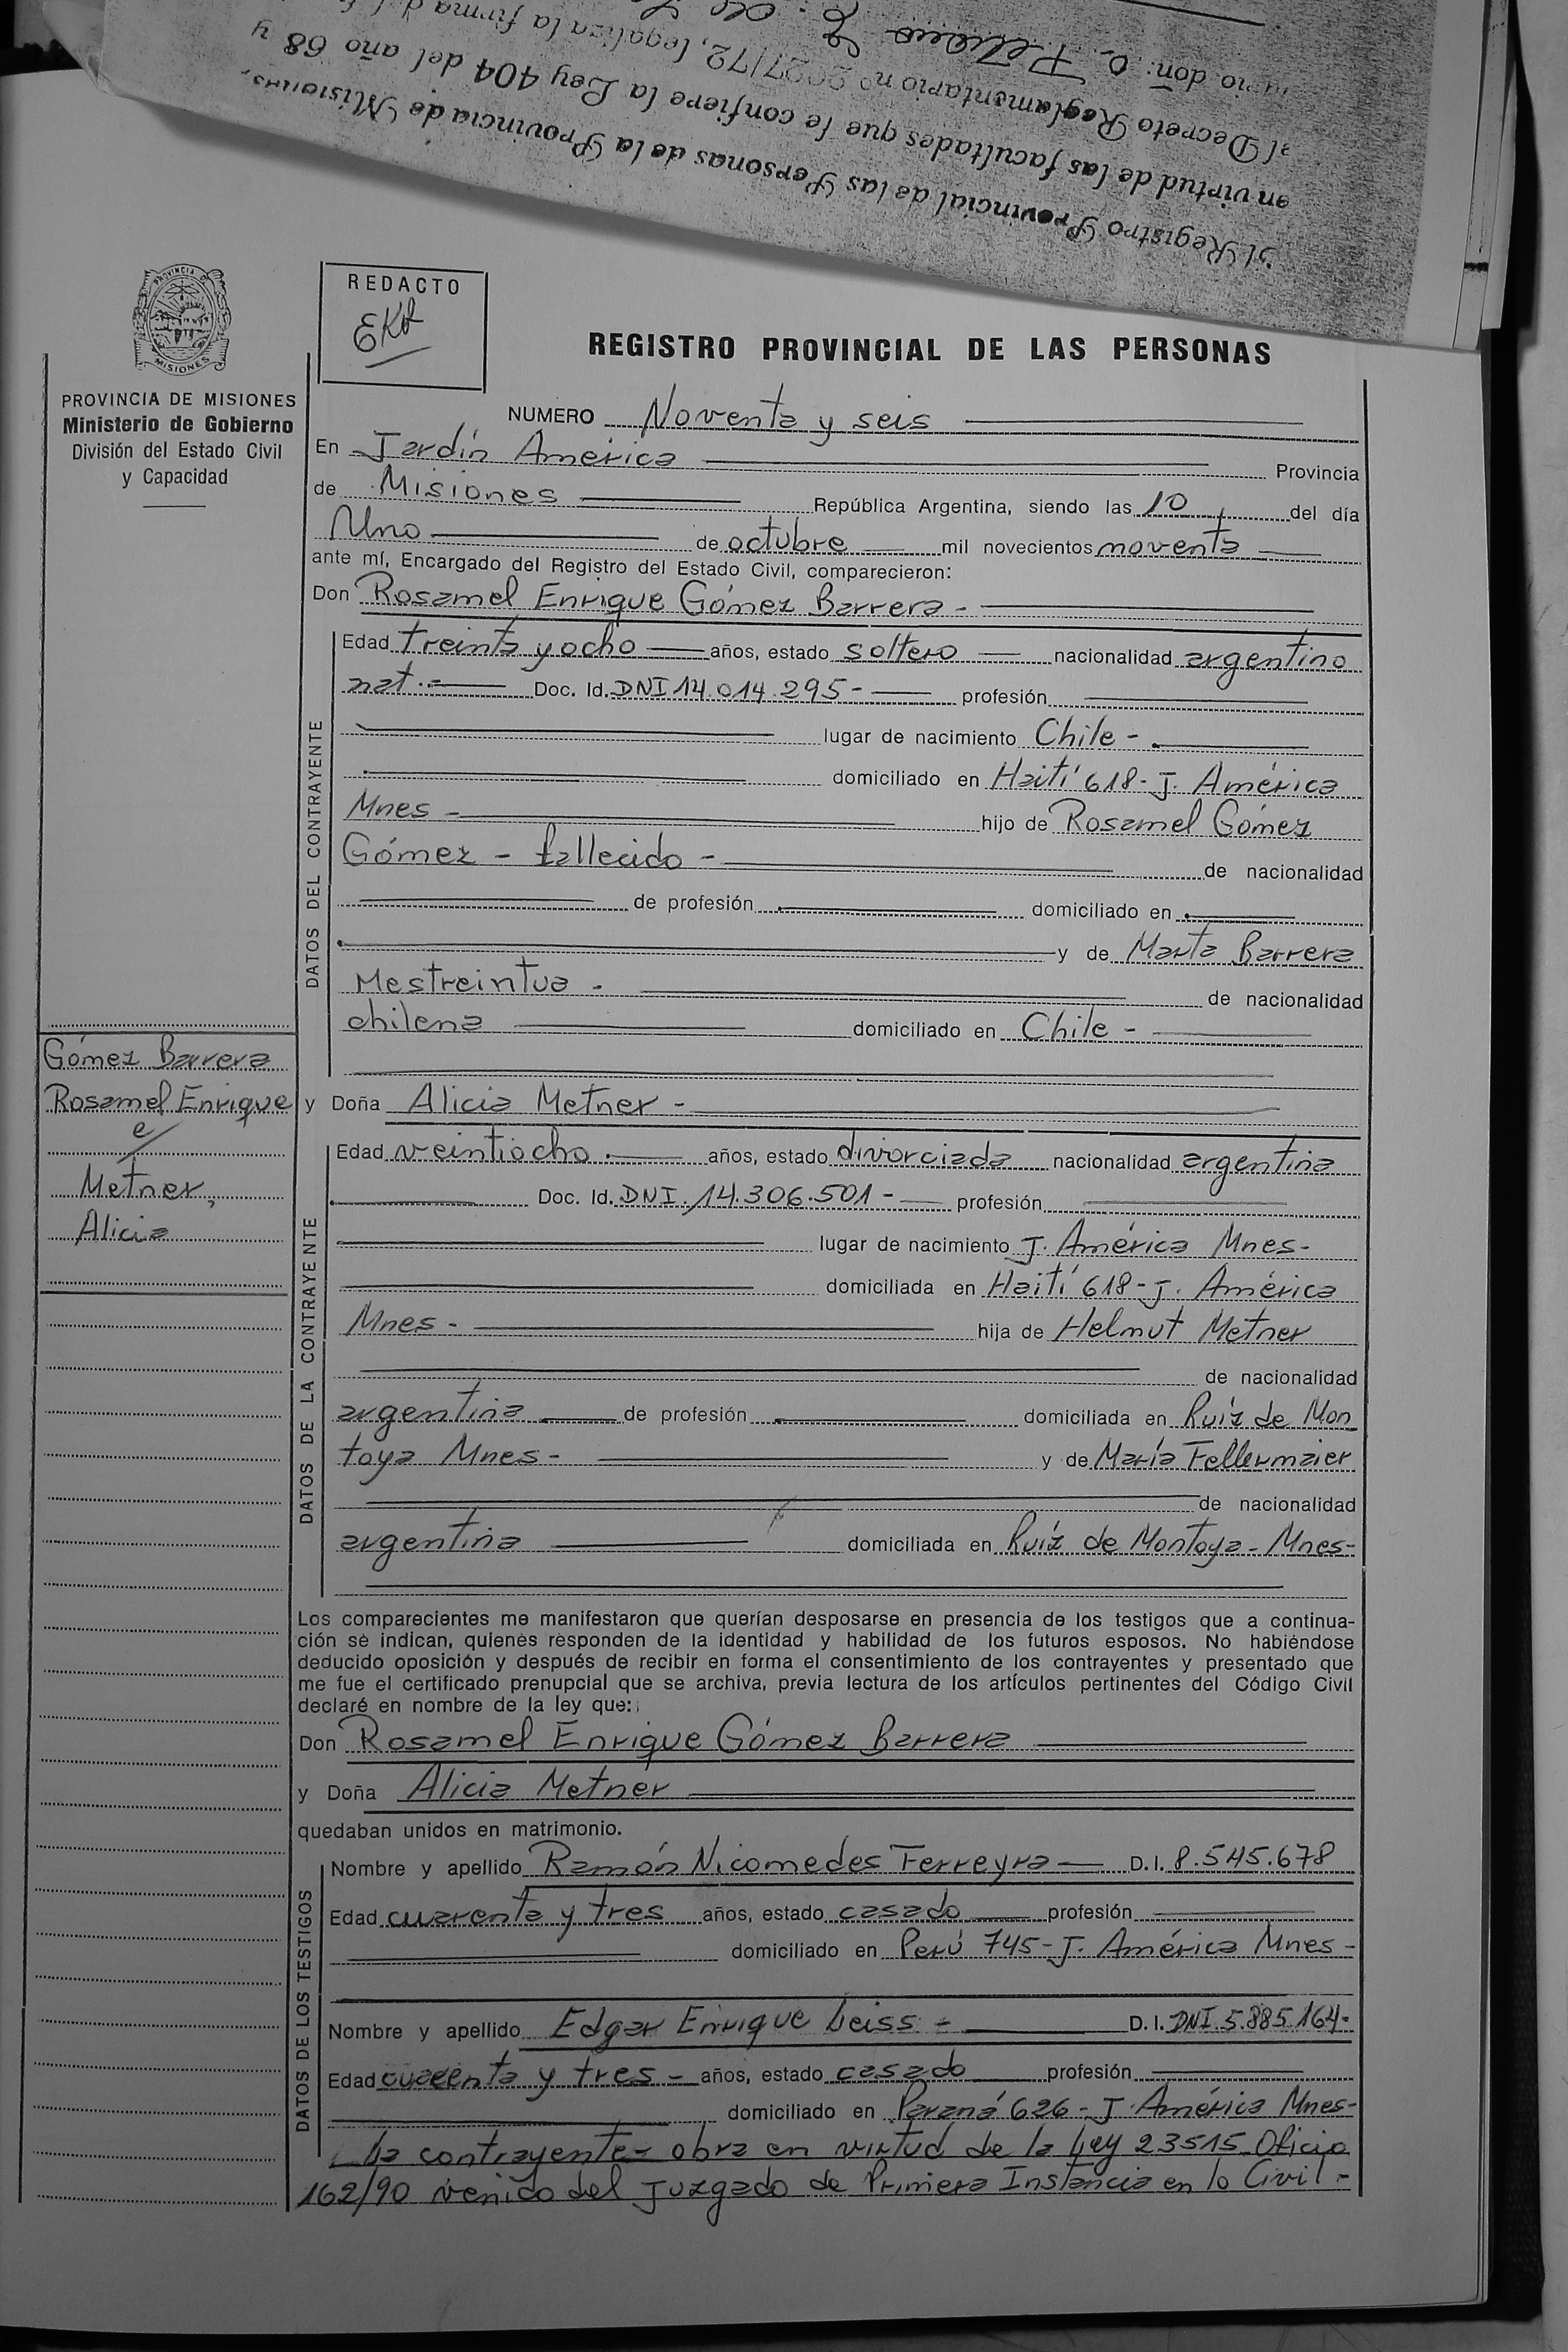 el Registro Provincial de las Personas de la Provincia de Misiones,
en virtud de las facultades que le confiere la Ley 404 del año 68 y
el Decreto Reglamentario nº 2027/72, legaliza la firma
don: O.
PROVINCIA DE MISIONES
Ministerio de Gobierno
División del Estado Civil
y Capacidad
REDACTO
EKR
REGISTRO PROVINCIAL DE LAS PERSONAS
NUMERO Noventa y seis
En Jardín América Provincia
de Misiones República Argentina, siendo las 10 del día
Uno de octubre mil novecientos noventa
ante mí, Encargado del Registro del Estado Civil, comparecieron:
Don Rosamel Enrique Gómez Barrera -
DATOS DEL CONTRAYENTE
Edad treinta y ocho años, estado soltero nacionalidad argentino
nat.- Doc. Id. DNI 14.014.295- profesión
lugar de nacimiento Chile -
domiciliado en Haití 618- J. América
Mnes - hijo de Rosamel Gómez
Gómez - fallecido - de nacionalidad
de profesión domiciliado en
y de Marta Barrera
Mestreintua - de nacionalidad
chilena domiciliado en Chile -
Gómez Barrera
Rosamel Enrique
e/
Metner,
Alicia
y Doña Alicia Metner -
DATOS DE LA CONTRAYENTE
Edad veintiocho.- años, estado divorciada nacionalidad argentina
Doc. Id. DNI. 14.306.501- profesión
lugar de nacimiento J. América Mnes-
domiciliada en Haití 618- J. América
Mnes - hija de Helmut Metner
de nacionalidad
argentina de profesión domiciliada en Ruíz de Mon
toya Mnes - y de María Fellermaier
de nacionalidad
argentina domiciliada en Ruíz de Montoya- Mnes-
Los comparecientes me manifestaron que querían desposarse en presencia de los testigos que a continua-
ción se indican, quienes responden de la identidad y habilidad de los futuros esposos. No habiéndose
deducido oposición y después de recibir en forma el consentimiento de los contrayentes y presentado que
me fue el certificado prenupcial que se archiva, previa lectura de los artículos pertinentes del Código Civil
declaré en nombre de la ley que:
Don Rosamel Enrique Gómez Barrera
y Doña Alicia Metner
quedaban unidos en matrimonio.
DATOS DE LOS TESTIGOS
Nombre y apellido Ramón Nicomedes Ferreyra D.I. 8.545.678
Edad cuarenta y tres años, estado casado profesión
domiciliado en Perú 745- J. América Mnes -
Nombre y apellido Edgar Enrique Leiss - D.I. DNI 5.885.164-
Edad cuarenta y tres - años, estado casado profesión
domiciliado en Paraná 626- J. América Mnes-
La contrayente obra en virtud de la Ley 23515 Oficio
162/90 venido del Juzgado de Primera Instancia en lo Civil -